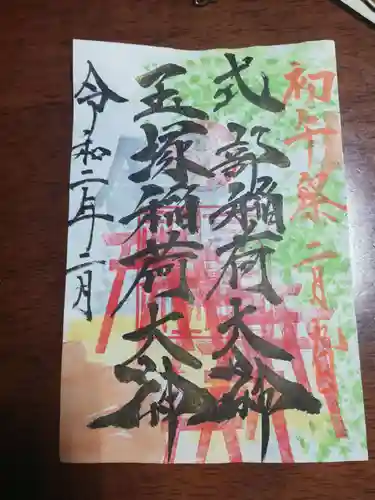 初午祭二月九日
式部稲荷大神
玉塚稲荷大神
令和二年二月